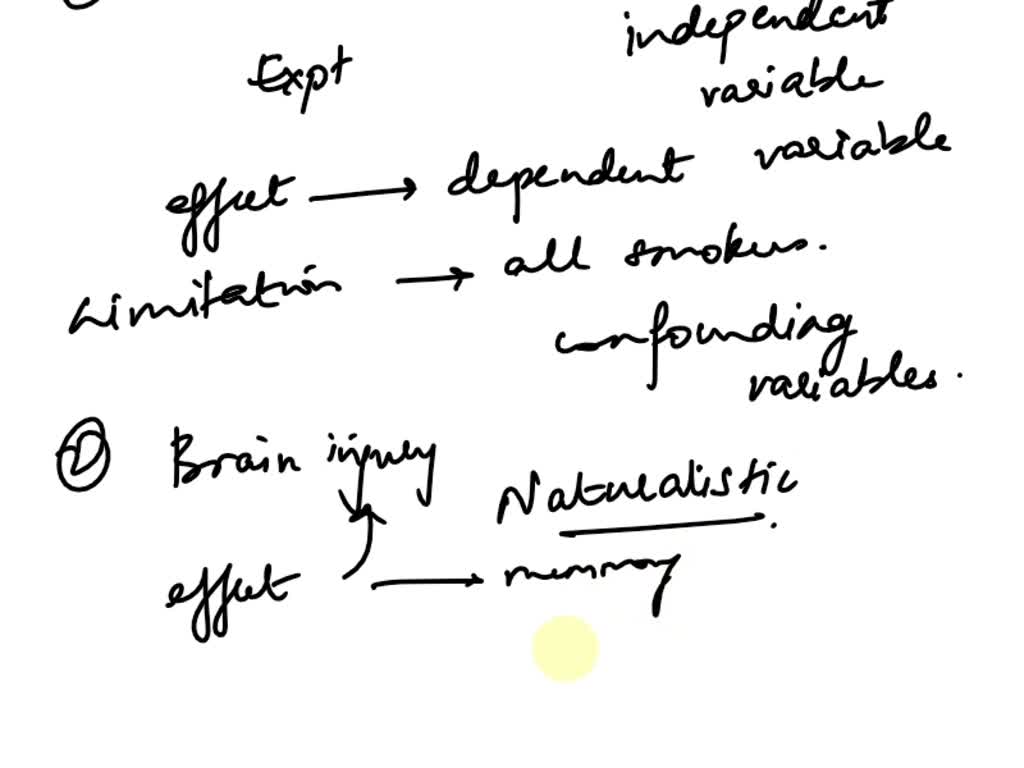 independent
Expt
variable
effect → dependent variable
Limitation → all smokers.
confounding
variables.
② Brain injury
Naturalistic
effect → memory